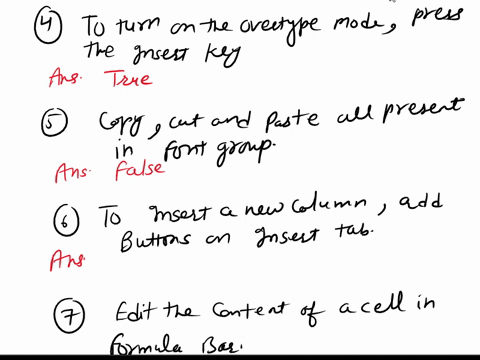 ④ To turn on the overtype mode, press
the Insert key
Ans. True
⑤ Copy, cut and Paste all present
in font group.
Ans. False
⑥ To Insert a new column, add
Buttons on Insert tab.
Ans.
⑦ Edit the Content of a cell in
formula Bar.